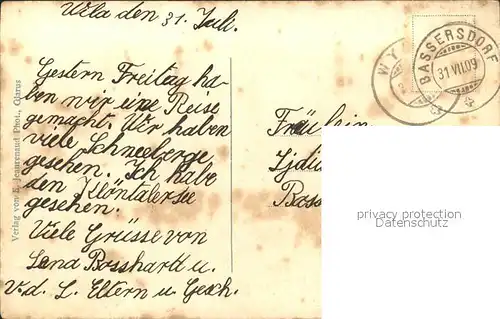 Wila den 31. Juli.
Gestern Freitag ha-
ben wir eine Reise
gemacht. Wir haben
viele Schneeberge
gesehen. Ich habe
den Klöntalersee
gesehen.
Viele Grüsse von
Lena Bosshardt u.
v. d. L. Eltern u. Gesch.
Fräulein
Lidi
Bass
WY
BASSERSDORF
31.VII.09
Verlag von E. Jeanrenaud Phot., Glarus
privacy protection
Datenschutz